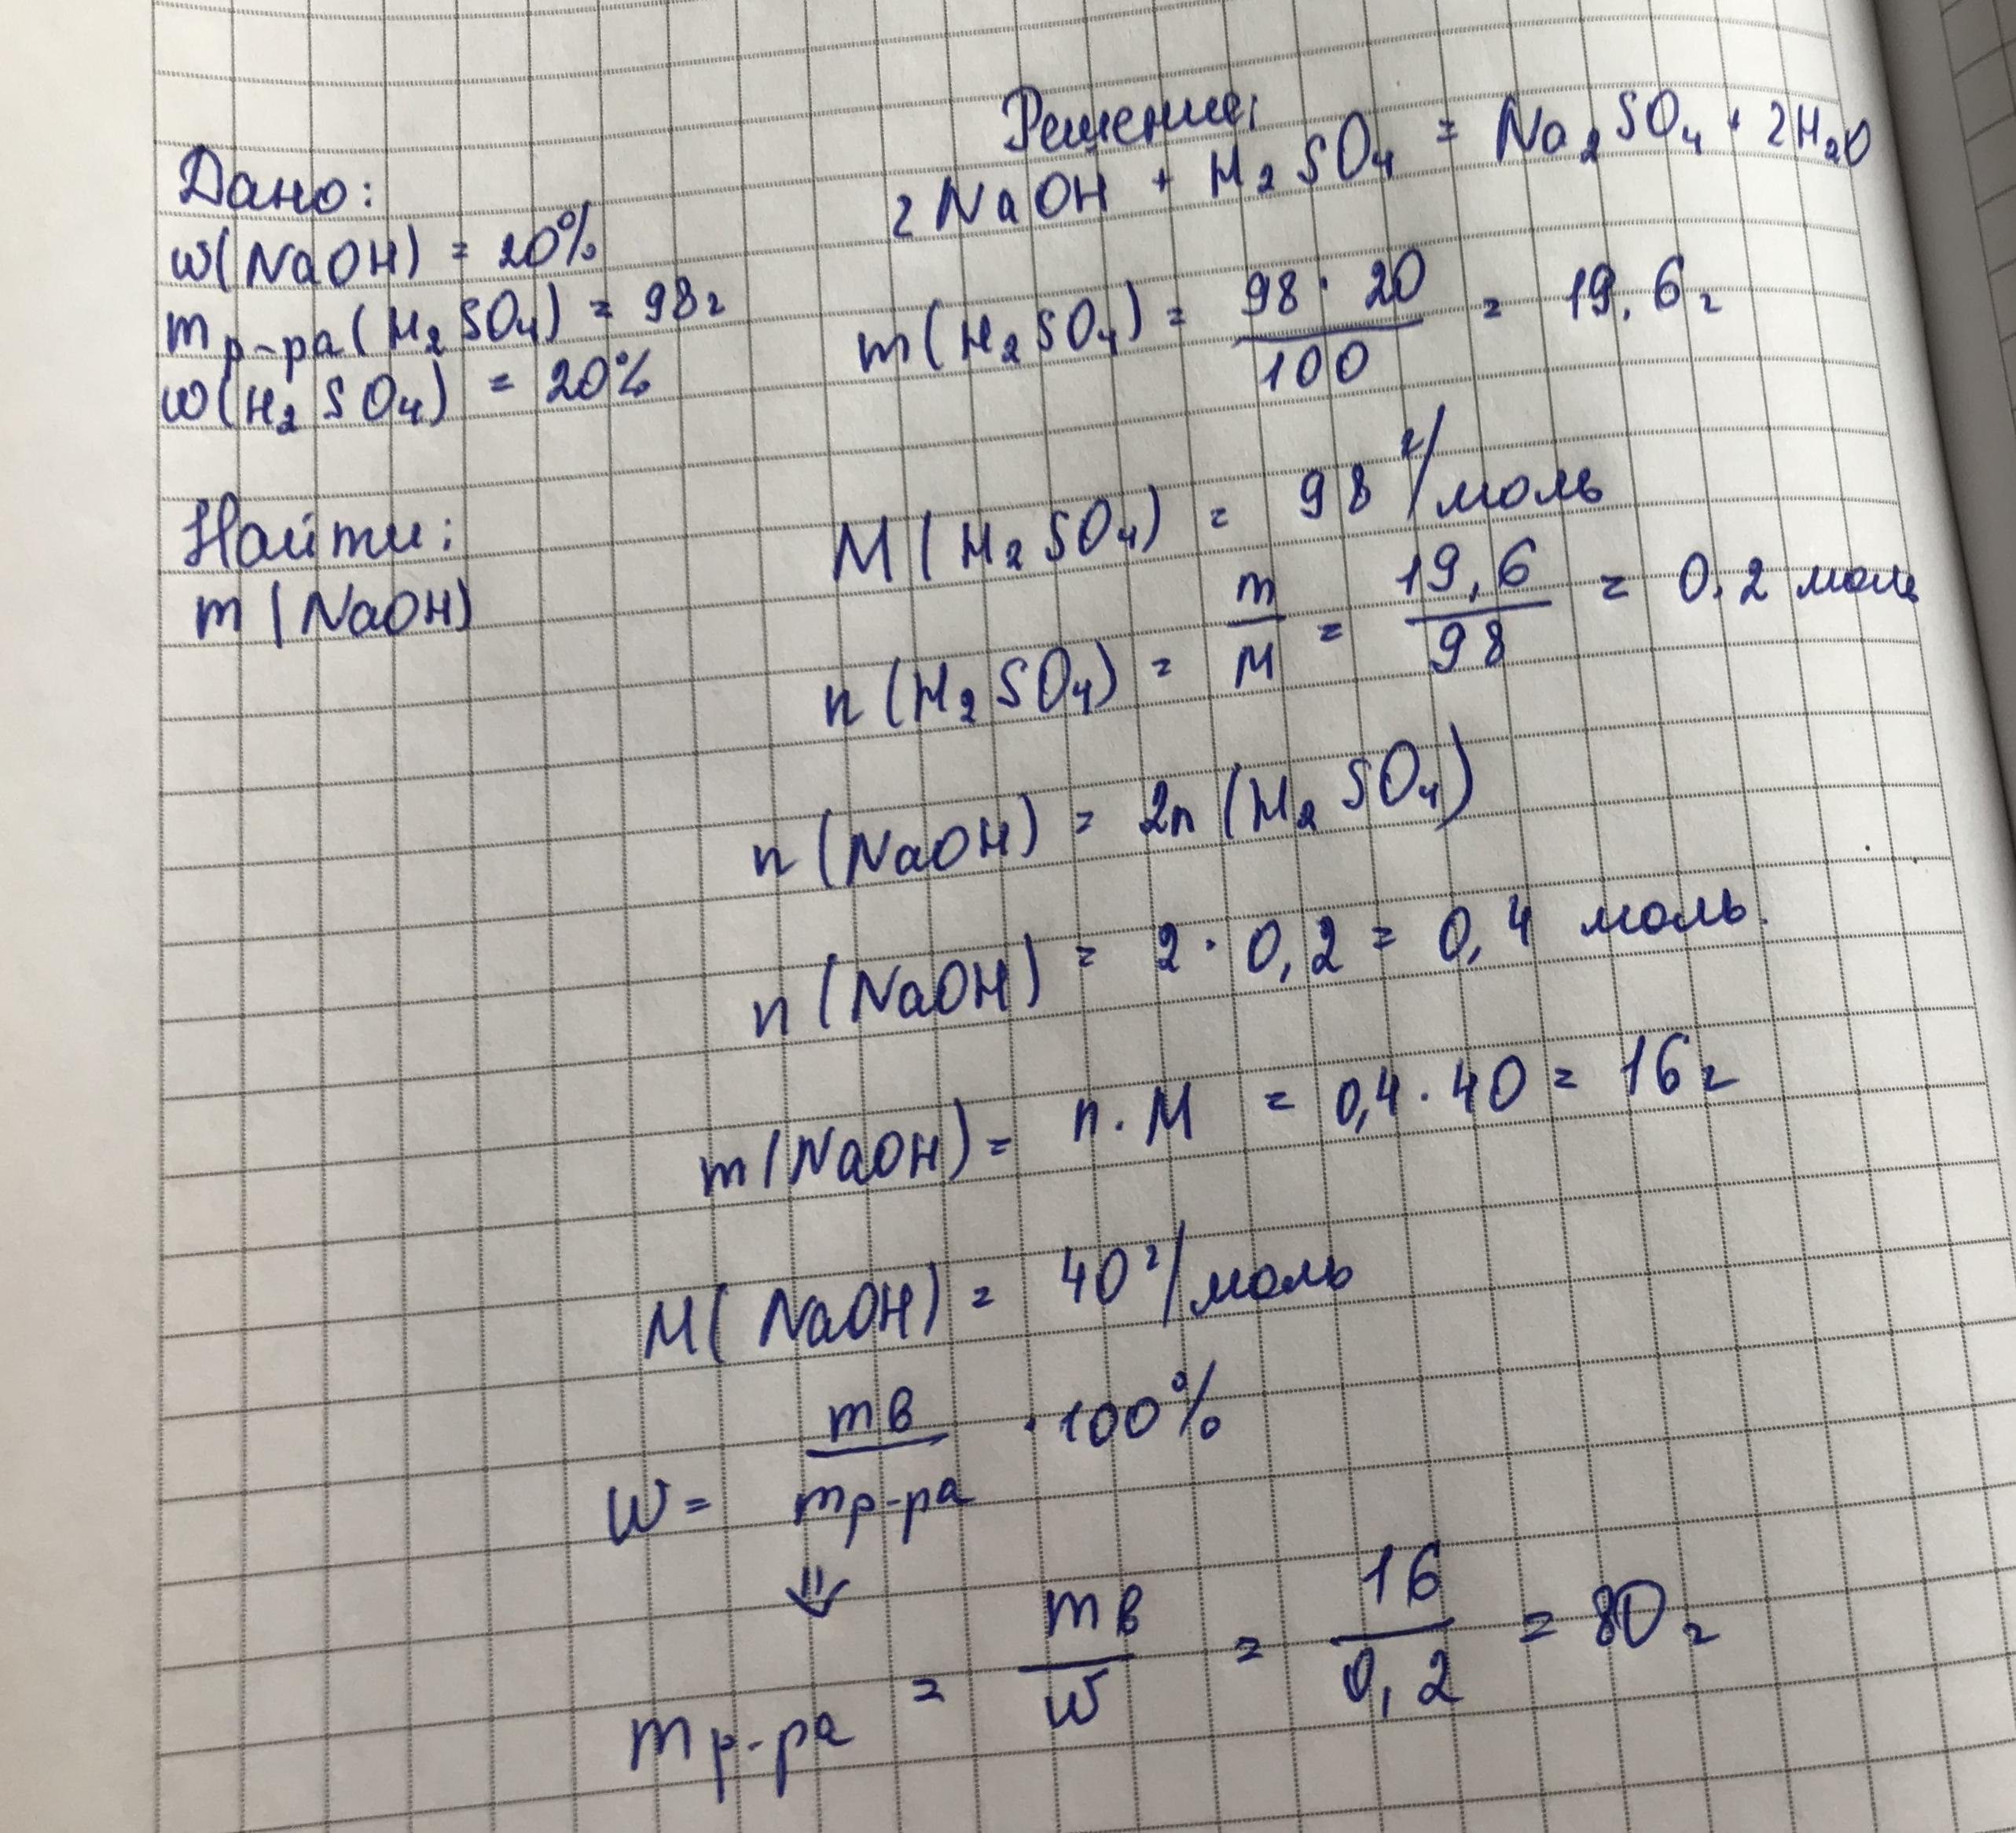 Дано:
w(NaOH) = 20%
mр-ра(H₂SO₄) = 98г
w(H₂SO₄) = 20%
Найти:
m(NaOH)
Решение:
2NaOH + H₂SO₄ = Na₂SO₄ + 2H₂O
m(H₂SO₄) = 98·20/100 = 19,6г
M(H₂SO₄) = 98 г/моль
n(H₂SO₄) = m/M = 19,6/98 = 0,2 моль
n(NaOH) = 2n(H₂SO₄)
n(NaOH) = 2·0,2 = 0,4 моль.
m(NaOH) = n·M = 0,4·40 = 16г
M(NaOH) = 40 г/моль
W = mв/mр-ра ·100%
⇓
mр-ра = mв/W = 16/0,2 = 80г